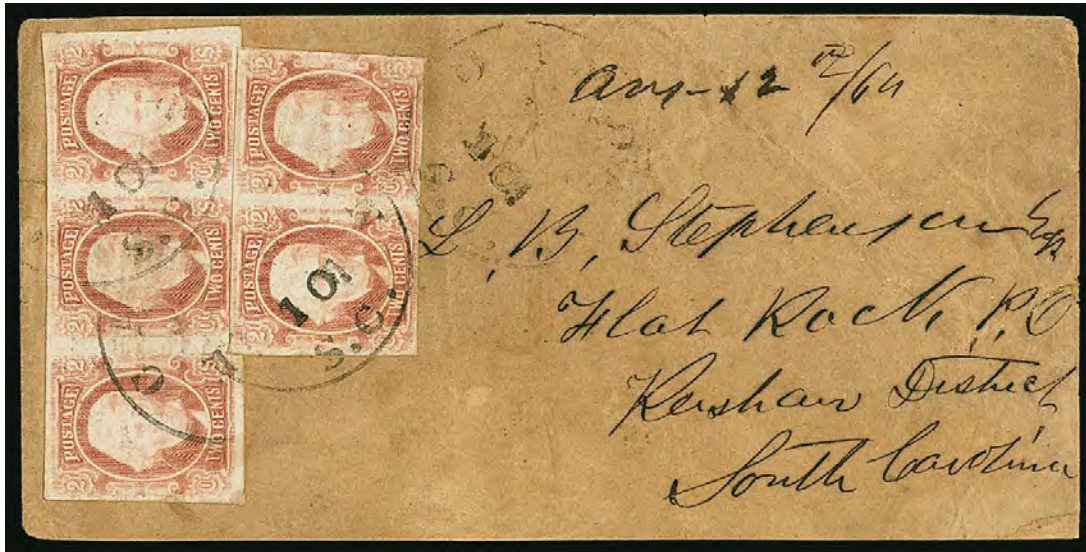 POSTAGE TWO CENTS
POSTAGE TWO CENTS
POSTAGE TWO CENTS
POSTAGE TWO CENTS
POSTAGE TWO CENTS
10
S.C.
10
S.C.
10
L, B, Stephenson Esq
Flat Rock, P,O
Kershaw District
South Carolina